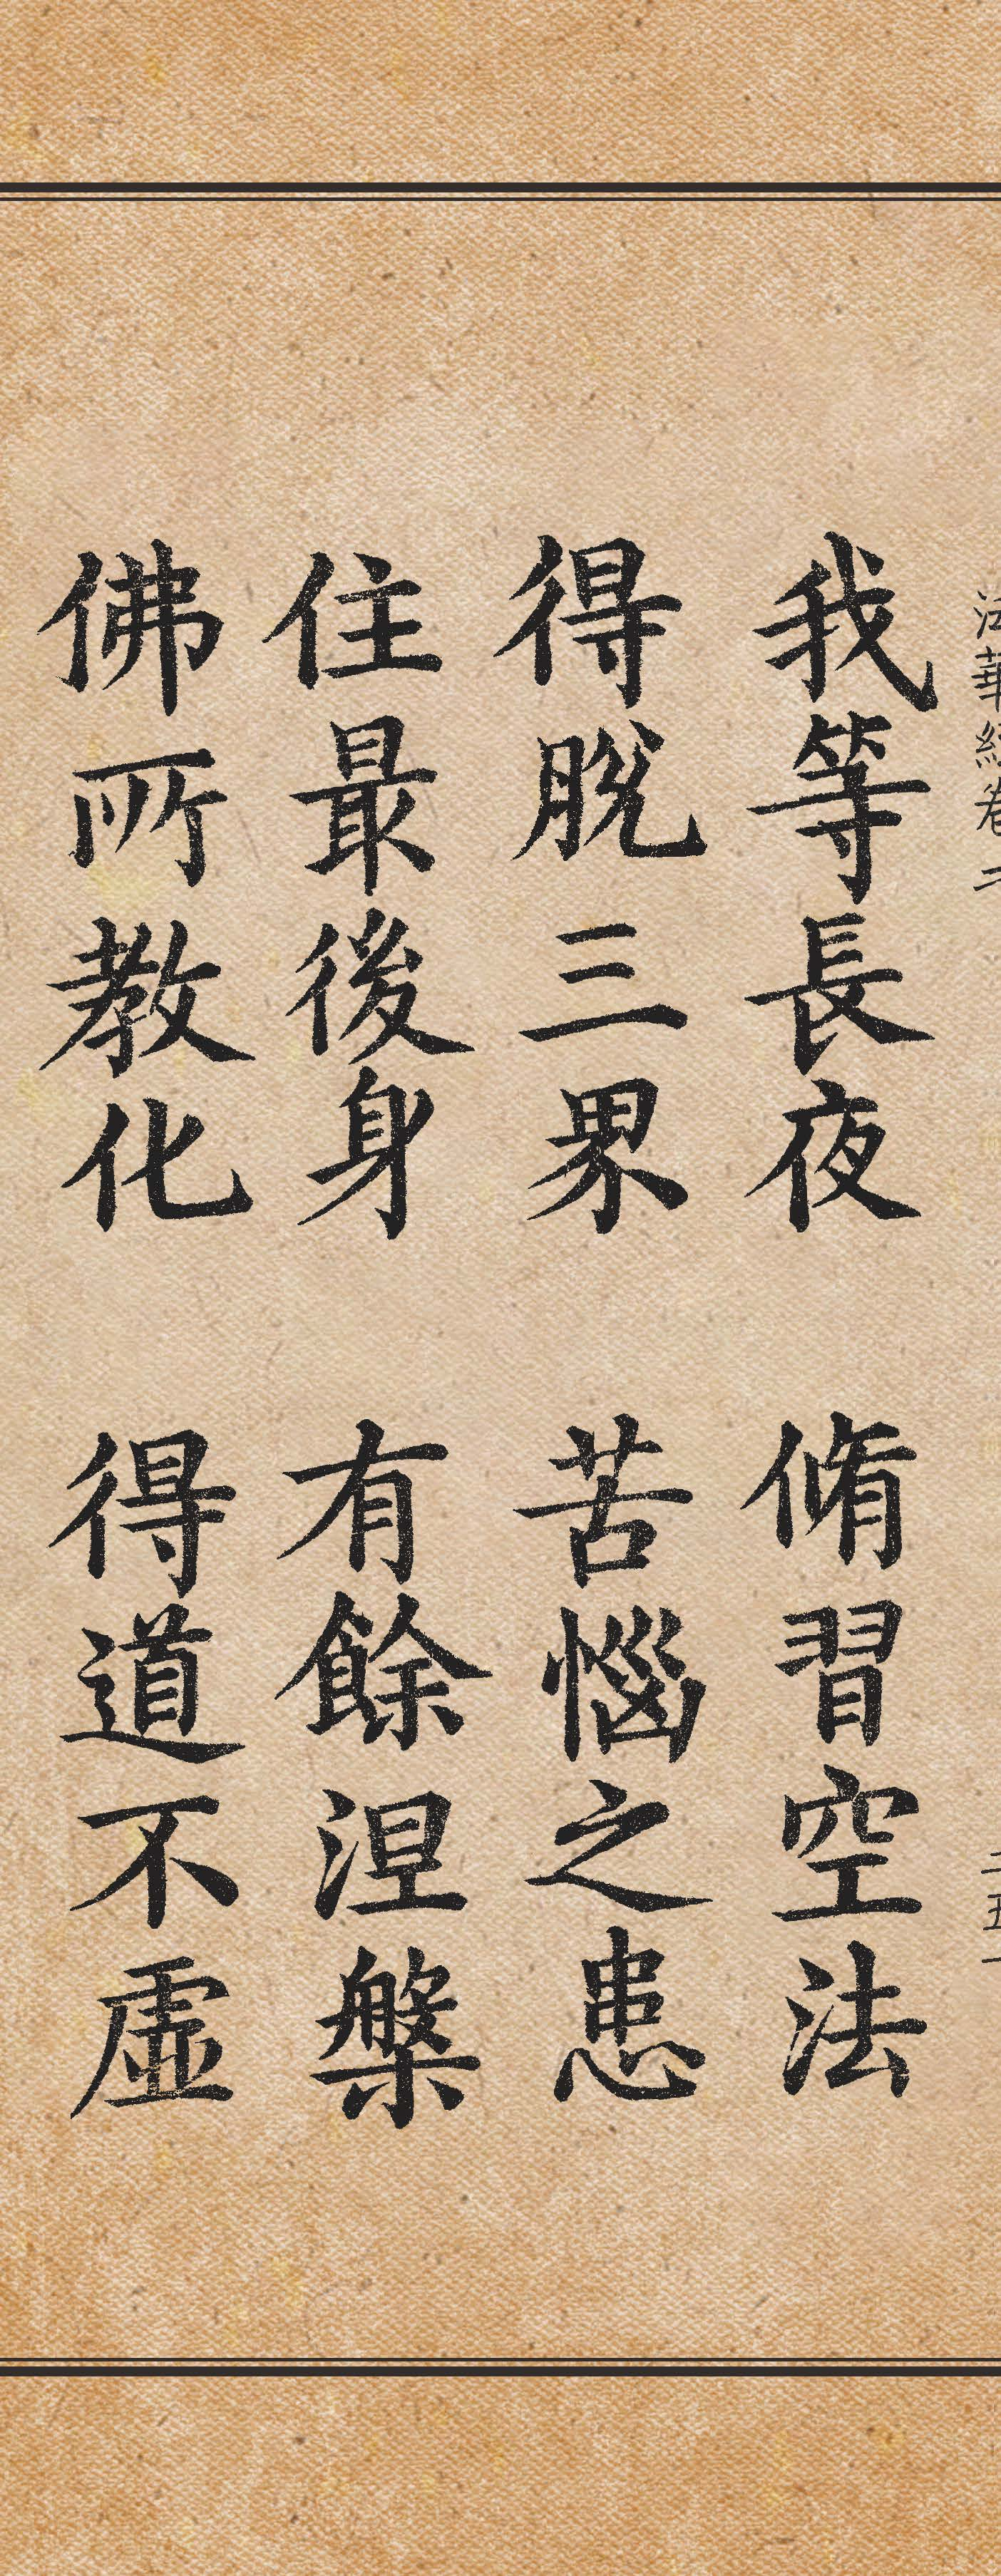 法華經卷二 二五一
我等長夜 脩習空法
得脫三界 苦惱之患
住最後身 有餘涅槃
佛所教化 得道不虛